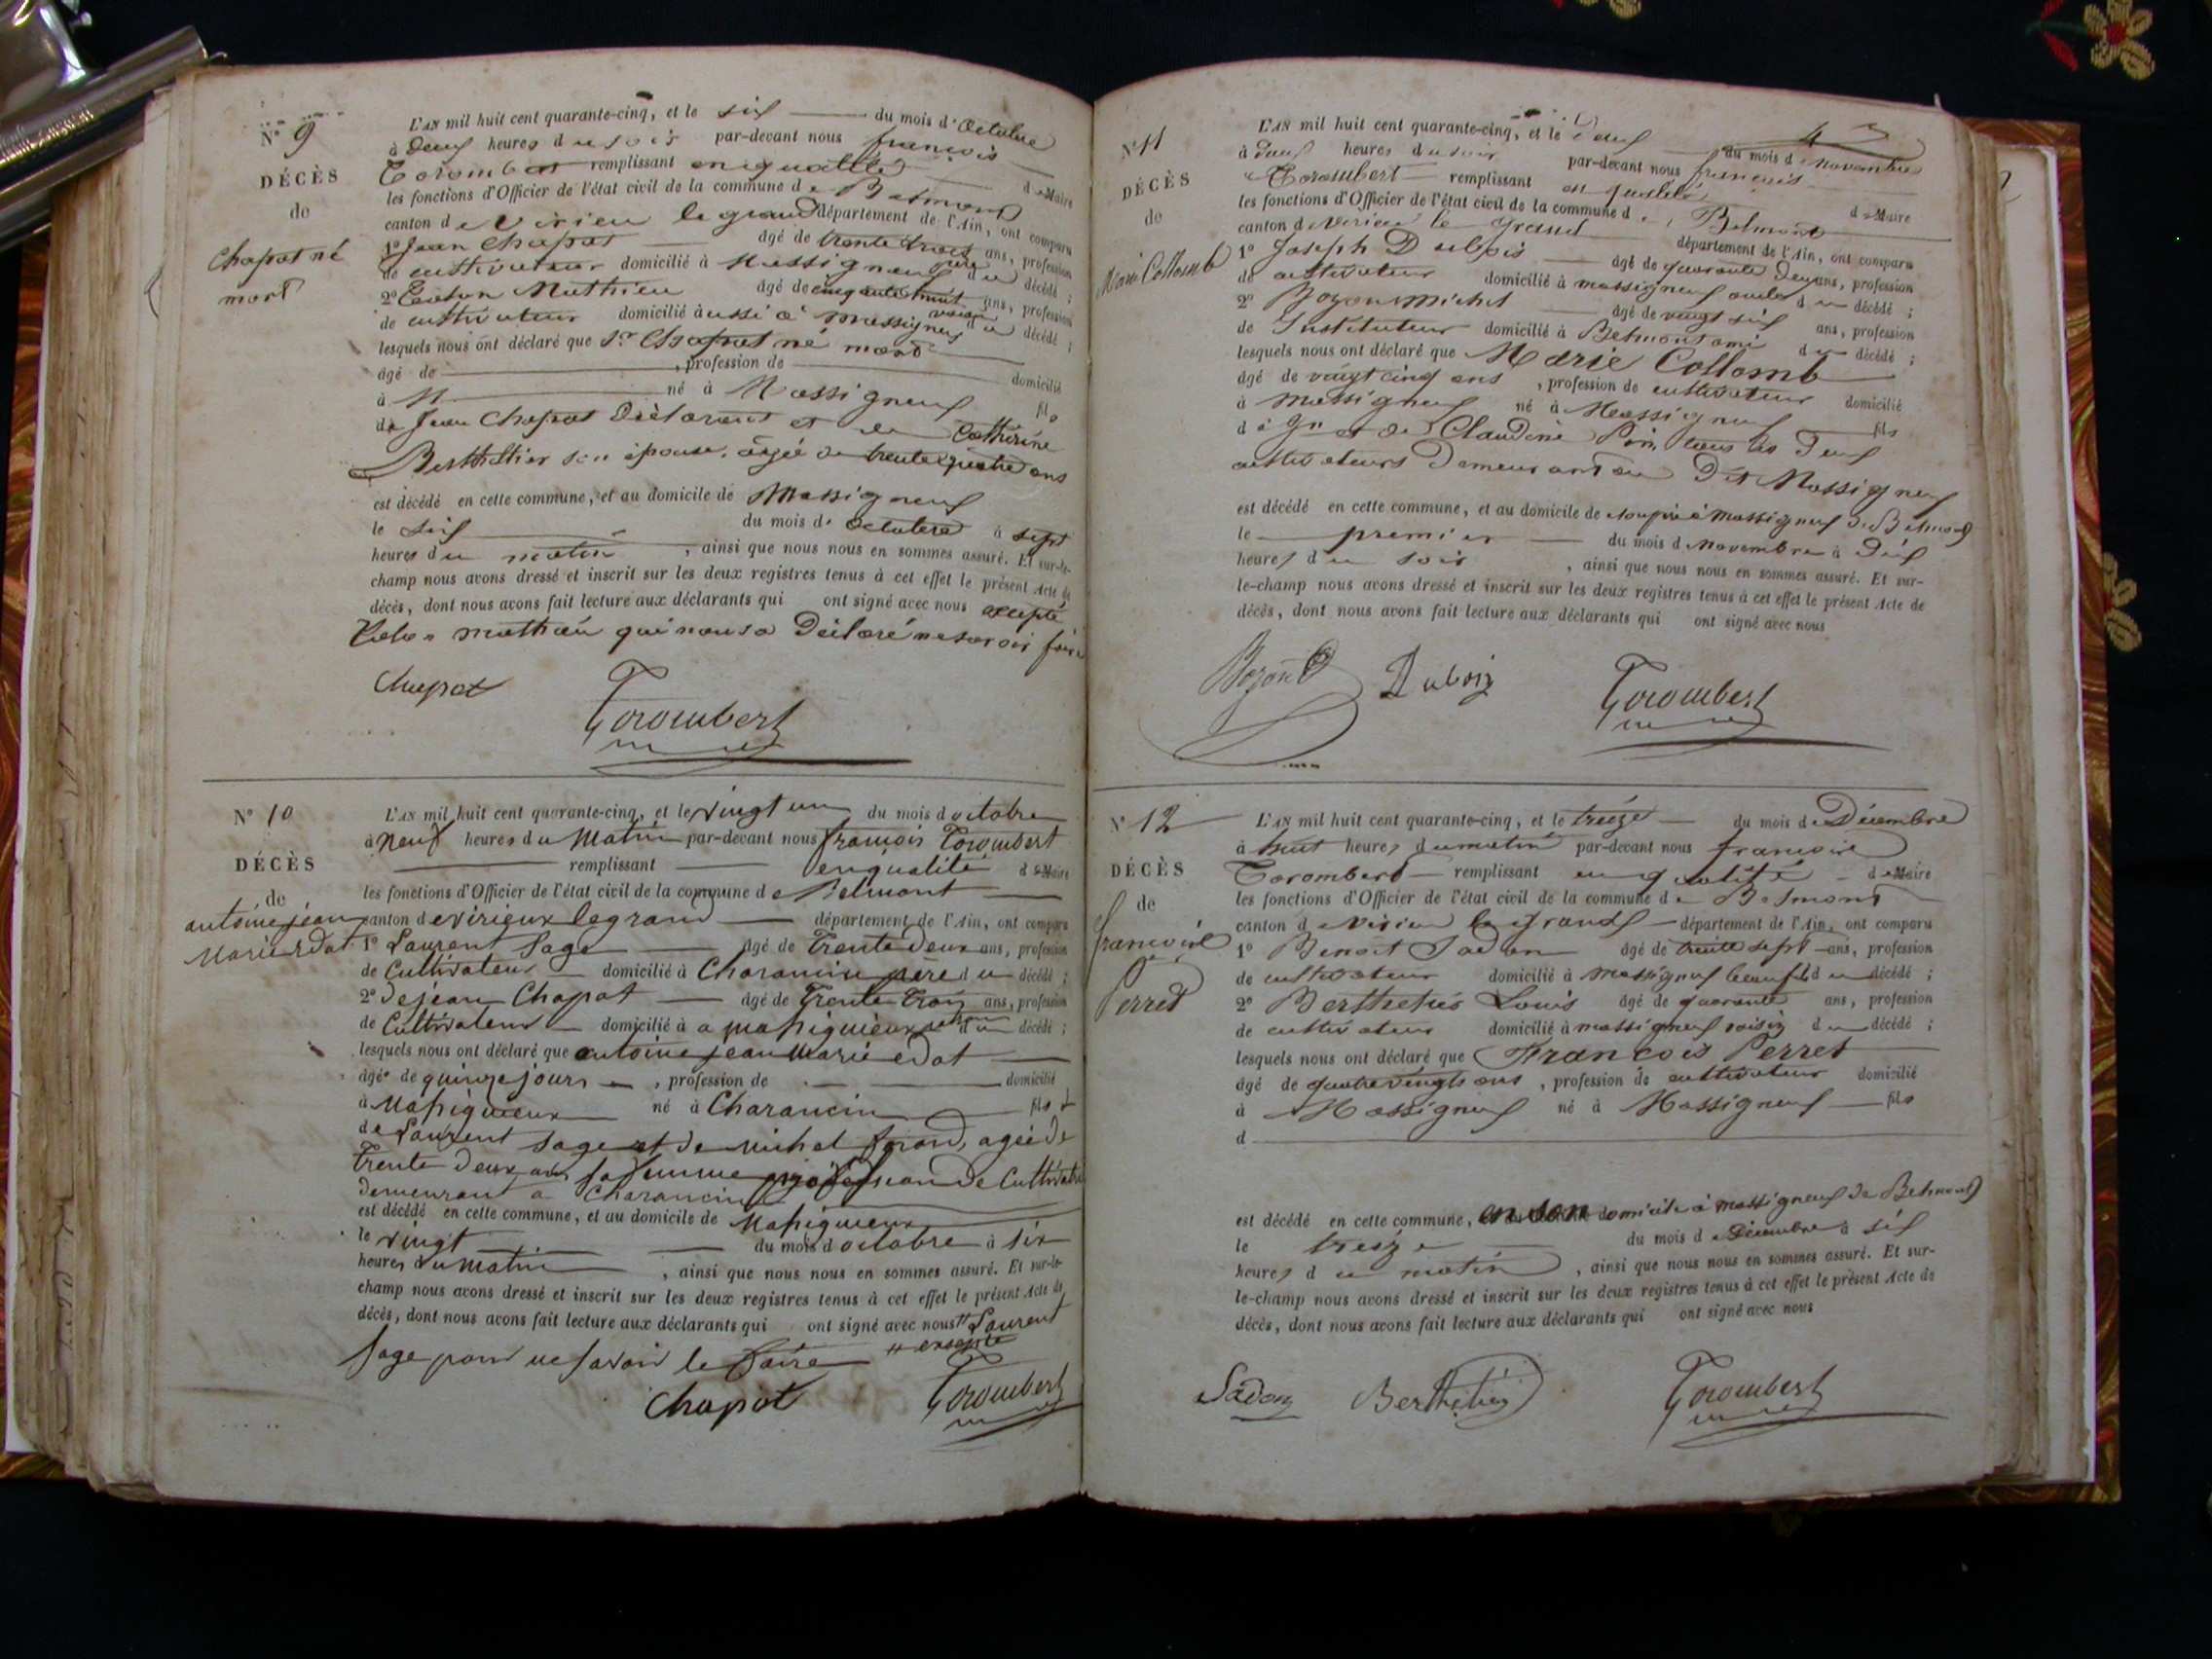 N° 9
DÉCÈS
de
Chapot né
mort
L'AN mil huit cent quarante-cinq, et le six du mois d'Octobre
à deux heures du soir par-devant nous françois
Torombert remplissant en qualité de Maire
les fonctions d'Officier de l'état civil de la commune de Belmont
canton de Virieu le grand département de l'Ain, ont comparu
1° Jean Chapot âgé de trente trois ans, profession
de cultivateur domicilié à Massigneux père du décédé ;
2° Mathieu âgé de cinquante huit ans, profession
de cultivateur domicilié aussi à Massigneu voisin du décédé ;
lesquels nous ont déclaré que Sr Chapot né mort
âgé de , profession de domicilié
à né à Massigneux fils
de Jean Chapot Déclarant et de Catherine
Berthellier son épouse, agée de trente quatre ans
est décédé en cette commune, et au domicile de Massigneux
le six du mois d'octobre à sept
heures du matin , ainsi que nous nous en sommes assuré. Et sur-le-
champ nous avons dressé et inscrit sur les deux registres tenus à cet effet le présent Acte de
décès, dont nous avons fait lecture aux déclarants qui ont signé avec nous excepté
mathieu qui nous a Déclaré ne savoir faire
Chapot Torombert
N° 10
DÉCÈS
de
antoine jean
Marie edat
L'AN mil huit cent quarante-cinq, et le vingt un du mois d octobre
à neuf heures du Matin par-devant nous françois Torombert
remplissant en qualité de Maire
les fonctions d'Officier de l'état civil de la commune de Belmont
canton de virieux legrand département de l'Ain, ont comparu
1° Laurent Sage âgé de Trente Deux ans, profession
de Cultivateur domicilié à Charancin père du décédé ;
2° Dejean Chapot âgé de Trente Trois ans, profession
de Cultivateur domicilié à a Massignieux voisin du décédé ;
lesquels nous ont déclaré que antoine jean Marie edat
âgé de quinze jours , profession de domicilié
à Massignieux né à Charancin fils
de Laurent Sage et de michel agée de
Trente Deux ans sa femme profession de Cultivateur
demeurant a Charancin
est décédé en cette commune, et au domicile de Massignieux
le vingt du mois d octobre à six
heures du Matin , ainsi que nous nous en sommes assuré. Et sur-le-
champ nous avons dressé et inscrit sur les deux registres tenus à cet effet le présent Acte de
décès, dont nous avons fait lecture aux déclarants qui ont signé avec nous Laurent
Sage pour ne savoir le faire excepté
Chapot Torombert
N° 11
DÉCÈS
de
Marie Collomb
L'AN mil huit cent quarante-cinq, et le deux du mois de novembre
à deux heures du soir par-devant nous françois
Torombert remplissant en qualité de Maire
les fonctions d'Officier de l'état civil de la commune de Belmont
canton de Virieu le grand département de l'Ain, ont comparu
1° Joseph Dubois âgé de quarante deux ans, profession
de cultivateur domicilié à massigneux oncle du décédé ;
2° Bozon michel âgé de vingt six ans, profession
de Instituteur domicilié à Belmont ami du décédé ;
lesquels nous ont déclaré que Marie Collomb
âgé de vingt cinq ans , profession de cultivateur domicilié
à Massigneux né à Massigneux fils
et de Claudine tous les deux
cultivateurs Demeurant au Dit Massigneux
est décédé en cette commune, et au domicile de à Massigneux De Belmont
le premier du mois de novembre à Dix
heures du soir , ainsi que nous nous en sommes assuré. Et sur-
le-champ nous avons dressé et inscrit sur les deux registres tenus à cet effet le présent Acte de
décès, dont nous avons fait lecture aux déclarants qui ont signé avec nous
Bozon Dubois Torombert
N° 12
DÉCÈS
de
françois
Perret
L'AN mil huit cent quarante-cinq, et le treize du mois de Décembre
à huit heures du matin par-devant nous françois
Torombert remplissant en qualité de Maire
les fonctions d'Officier de l'état civil de la commune de Belmont
canton de Virieu le Grand département de l'Ain, ont comparu
1° Benoit Sadon âgé de trente sept ans, profession
de cultivateur domicilié à massigneux beau fils du décédé ;
2° Berthelier Louis âgé de quarante ans, profession
de cultivateur domicilié à massigneux voisin du décédé ;
lesquels nous ont déclaré que François Perret
âgé de quatre vingts ans , profession de cultivateur domicilié
à Massigneux né à Massigneux fils
d
est décédé en cette commune, en son domicile à massigneux de Belmont
le treize du mois de Décembre à six
heures du matin , ainsi que nous nous en sommes assuré. Et sur-
le-champ nous avons dressé et inscrit sur les deux registres tenus à cet effet le présent Acte de
décès, dont nous avons fait lecture aux déclarants qui ont signé avec nous
Sadon Berthelier Torombert